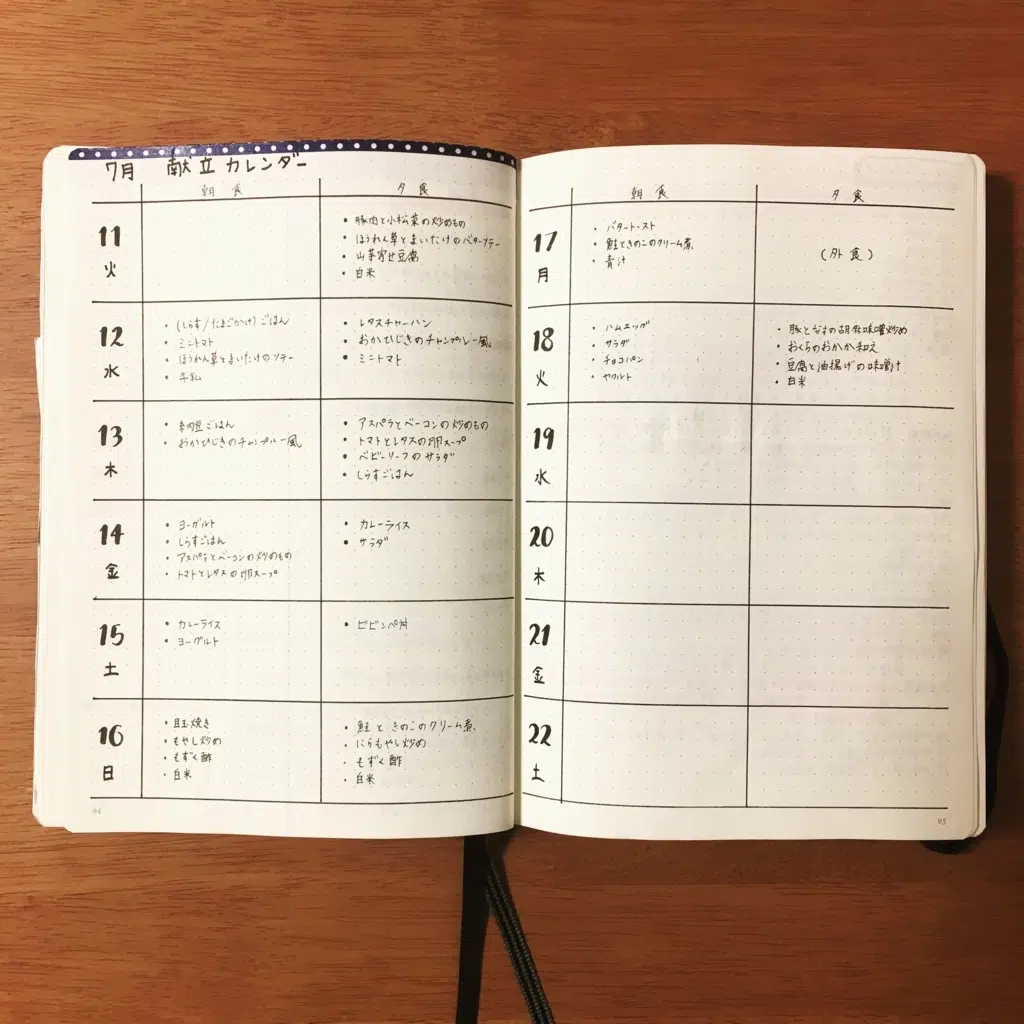 7月 献立カレンダー
朝食 夕食
11 火
・豚肉と小松菜の炒めもの
・ほうれん草とまいたけのバターソテー
・山芋寄せ豆腐
・白米
12 水
・(しらす/たまごかけ)ごはん
・ミニトマト
・ほうれん草とまいたけのソテー
・牛乳
・レタスチャーハン
・おかひじきのチャンプルー風
・ミニトマト
13 木
・納豆ごはん
・おかひじきのチャンプルー風
・アスパラとベーコンの炒めもの
・トマトとレタスの卵スープ
・ベビーリーフのサラダ
・しらすごはん
14 金
・ヨーグルト
・しらすごはん
・アスパラとベーコンの炒めもの
・トマトとレタスの卵スープ
・カレーライス
・サラダ
15 土
・カレーライス
・ヨーグルト
・ビビンバ丼
16 日
・目玉焼き
・もやし炒め
・もずく酢
・白米
・鮭ときのこのクリーム煮
・にらもやし炒め
・もずく酢
・白米
94
朝食 夕食
17 月
・バタートースト
・鮭ときのこのクリーム煮
・青汁
(外食)
18 火
・ハムエッグ
・サラダ
・チョコパン
・ヤクルト
・豚となすの胡麻味噌炒め
・おくらのおかか和え
・豆腐と油揚げの味噌汁
・白米
19 水
20 木
21 金
22 土
95